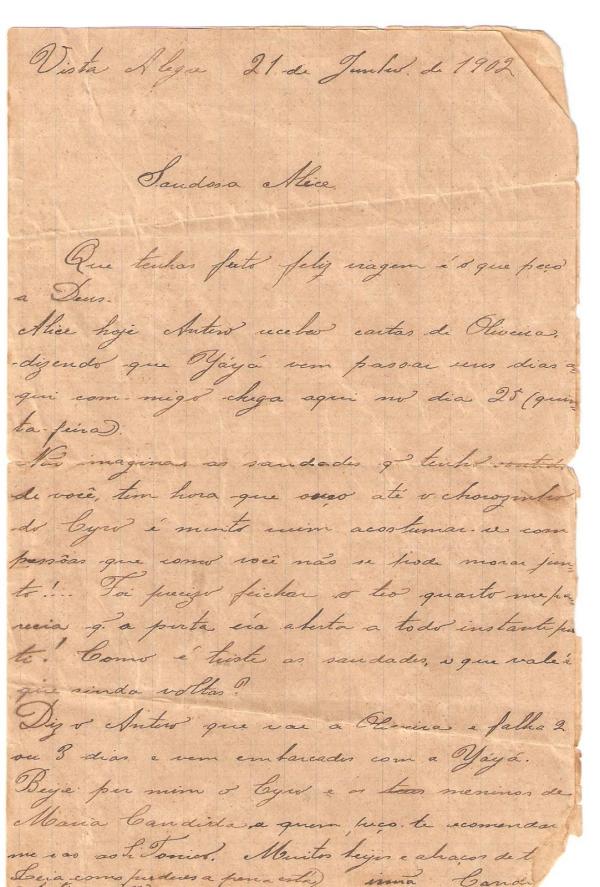 Vista Alegre 21 de Junho de 1902
Saudosa Alice
Que tenhas feito feliz viagem é o que peço
a Deus.
Alice hoje Antero recebeo cartas de Oliveira,
dizendo que Yáyá vem passar uns dias a-
qui com-migo chega aqui no dia 25 (quin-
ta-feira).
Não imaginas as saudades q' tenho
de você, tem hora que ouço até o chorozinho
do Cyro é muito ruim acostumar-se com
pessôas que como você não se pode morar jun-
to!... Foi preciso fichar o teo quarto me pa-
recia q' a porta éra aberta a todo instante por
ti! Como é triste as saudades, o que vale é
que ainda voltas?
Diz o Antero que vae a Oliveira e falha 2
ou 3 dias e vem embarcados com a Yáyá.
Beije por mim o Cyro e os meninos de
Maria Candida, a quem peço-te recomendar
me e ao Tonico. Muitos beijos e abraços de t
Leia como puderes a pena está irmã Cand